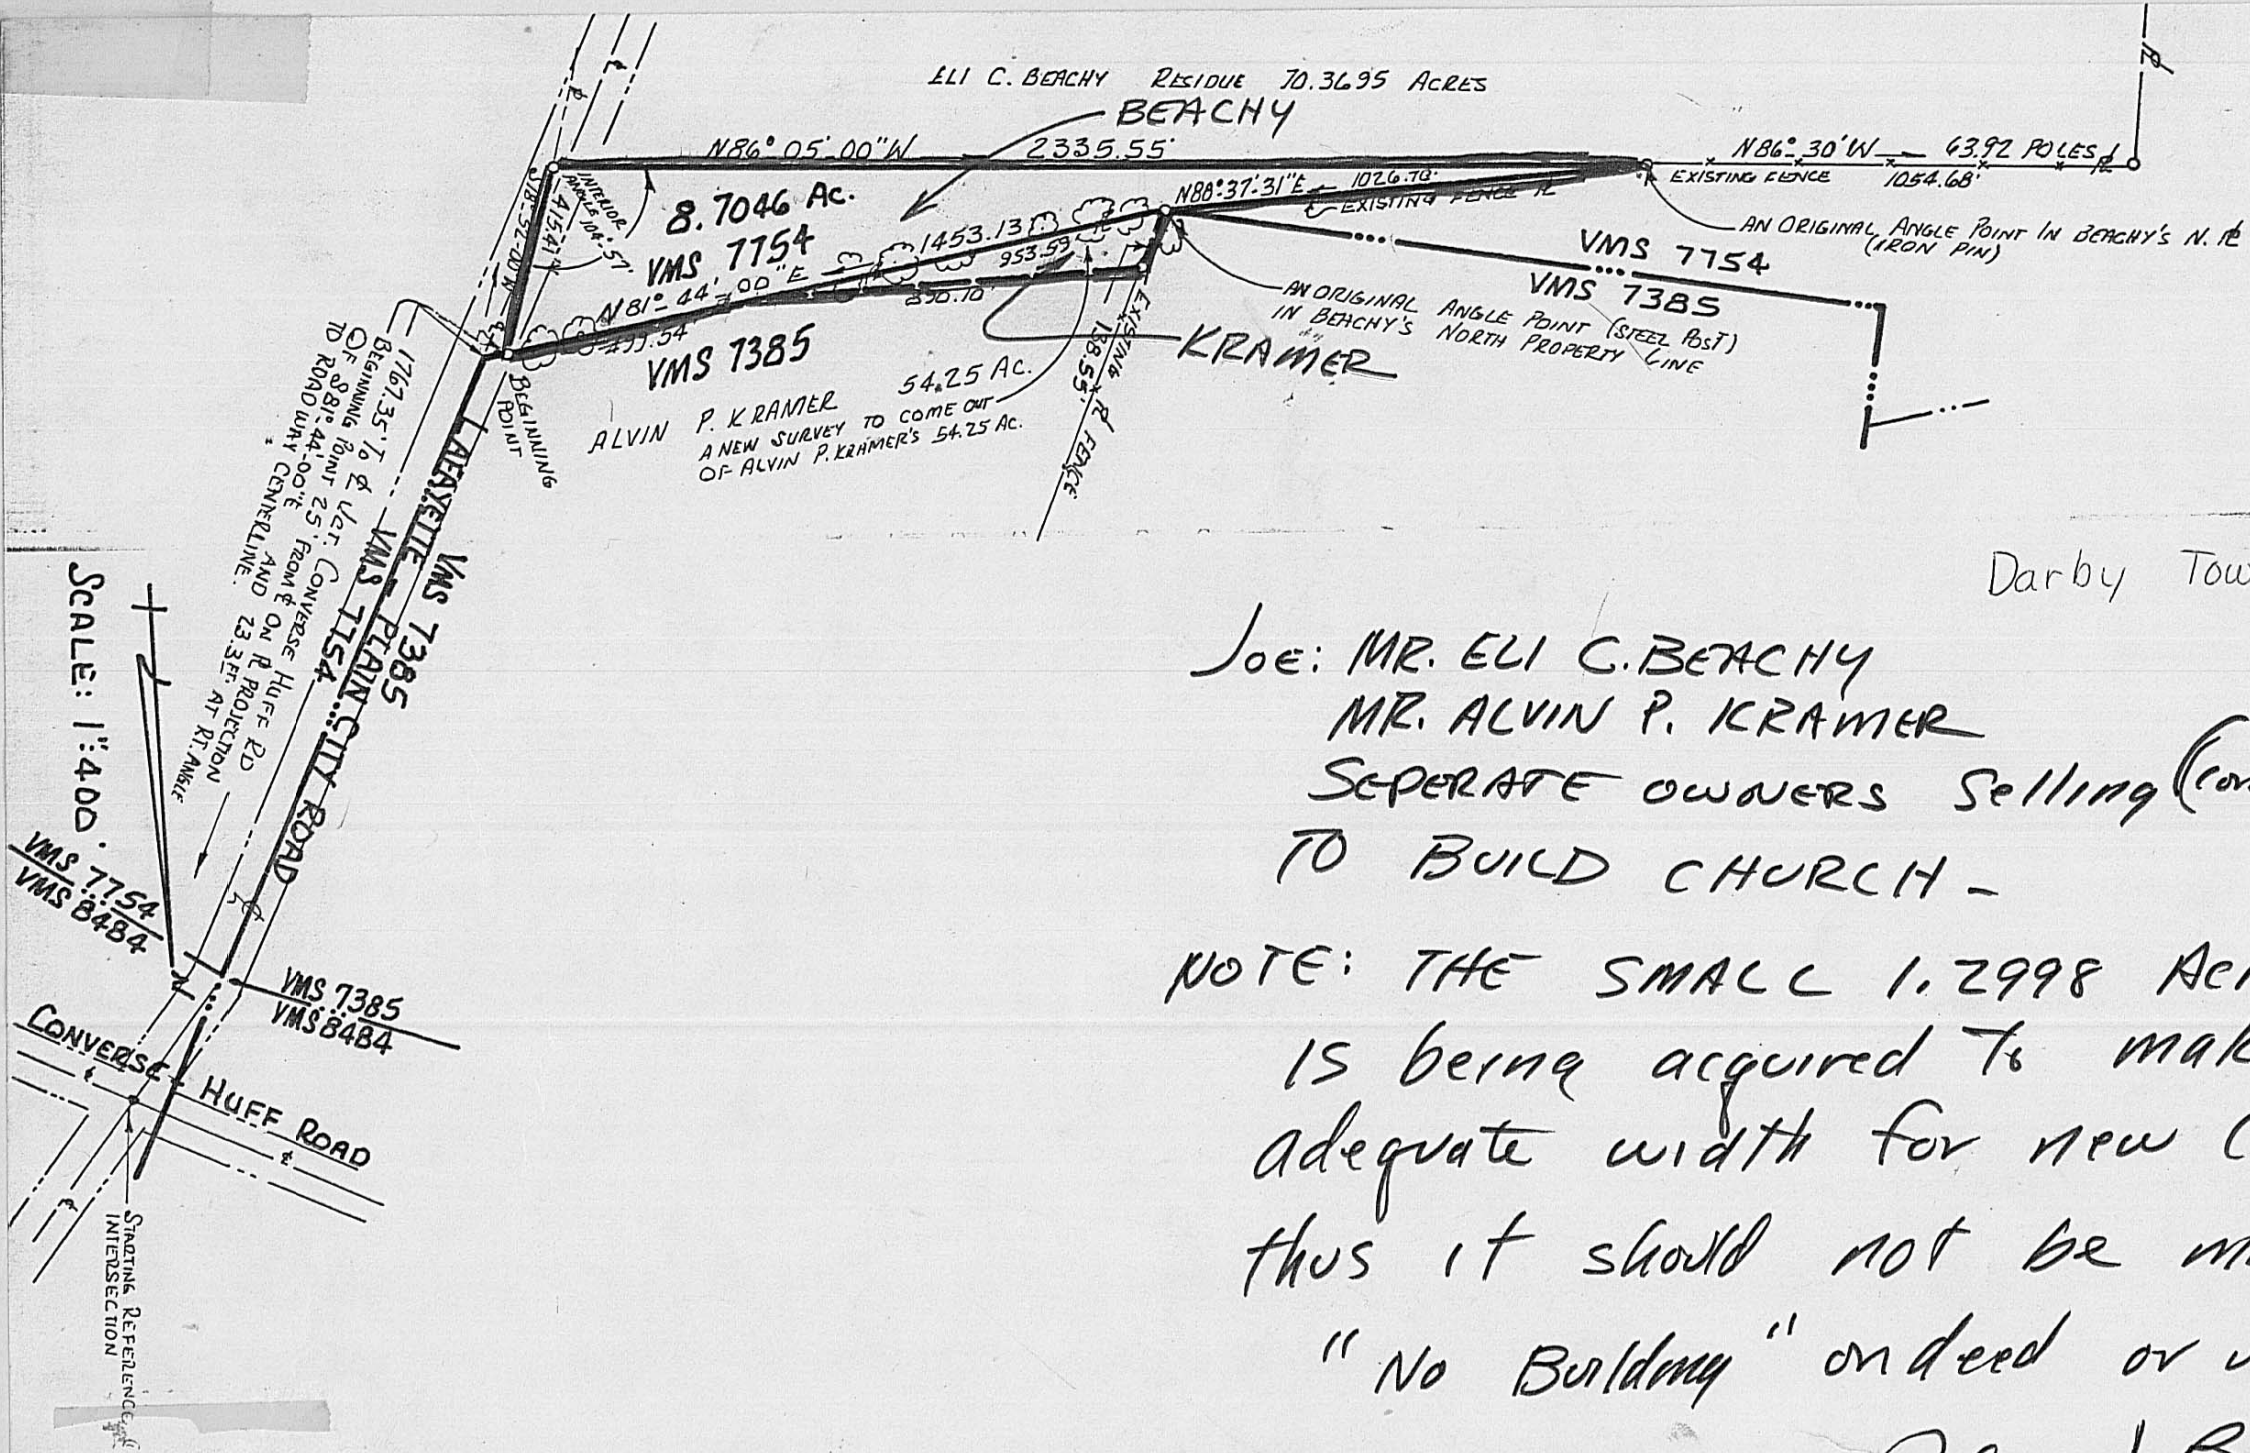 ELI C. BEACHY RESIDUE 70.3695 ACRES
BEACHY
N86° 05'-00" W 2335.55'
N86°-30' W 63.92 POLES
EXISTING FENCE 1054.68'
8.7046 AC.
VMS 7754
INTERIOR
ANGLE 104°-57'
S18°-52'-00 W
415.47'
N88°-37'-31" E 1026.70'
EXISTING FENCE
AN ORIGINAL ANGLE POINT IN BEACHY'S N.
(IRON PIN)
1453.13'
953.59
N81°-44'-00" E
499.54
890.10'
VMS 7385
VMS 7754
VMS 7385
AN ORIGINAL ANGLE POINT (STEEL POST)
IN BEACHY'S NORTH PROPERTY LINE
KRAMER
EXISTING FENCE
138.55'
ALVIN P. KRAMER 54.25 AC.
A NEW SURVEY TO COME OUT
OF ALVIN P. KRAMER'S 54.25 AC.
BEGINNING
POINT
1767.35' To ₵ JCT. CONVERSE HUFF RD
BEGINING POINT 25' FROM ₵ ON PROJECTION
OF S81°-44'-00"E AND 23.3 FT. AT RT. ANGLE
TO ROADWAY CENTERLINE.
LAFAYETTE - PLAIN CITY ROAD
VMS 7385
VMS 7754
SCALE: 1":400'
VMS 7754
VMS 8484
VMS 7385
VMS 8484
CONVERSE HUFF ROAD
STARTING REFERENCE
INTERSECTION
Darby Tow
JOE: MR. ELI C. BEACHY
MR. ALVIN P. KRAMER
SEPERATE OWNERS Selling (con
TO BUILD CHURCH -
NOTE: THE SMALL 1.2998 Acr
is being acquired To mak
adequate width for new C
thus it should not be m
"No Building" on deed or